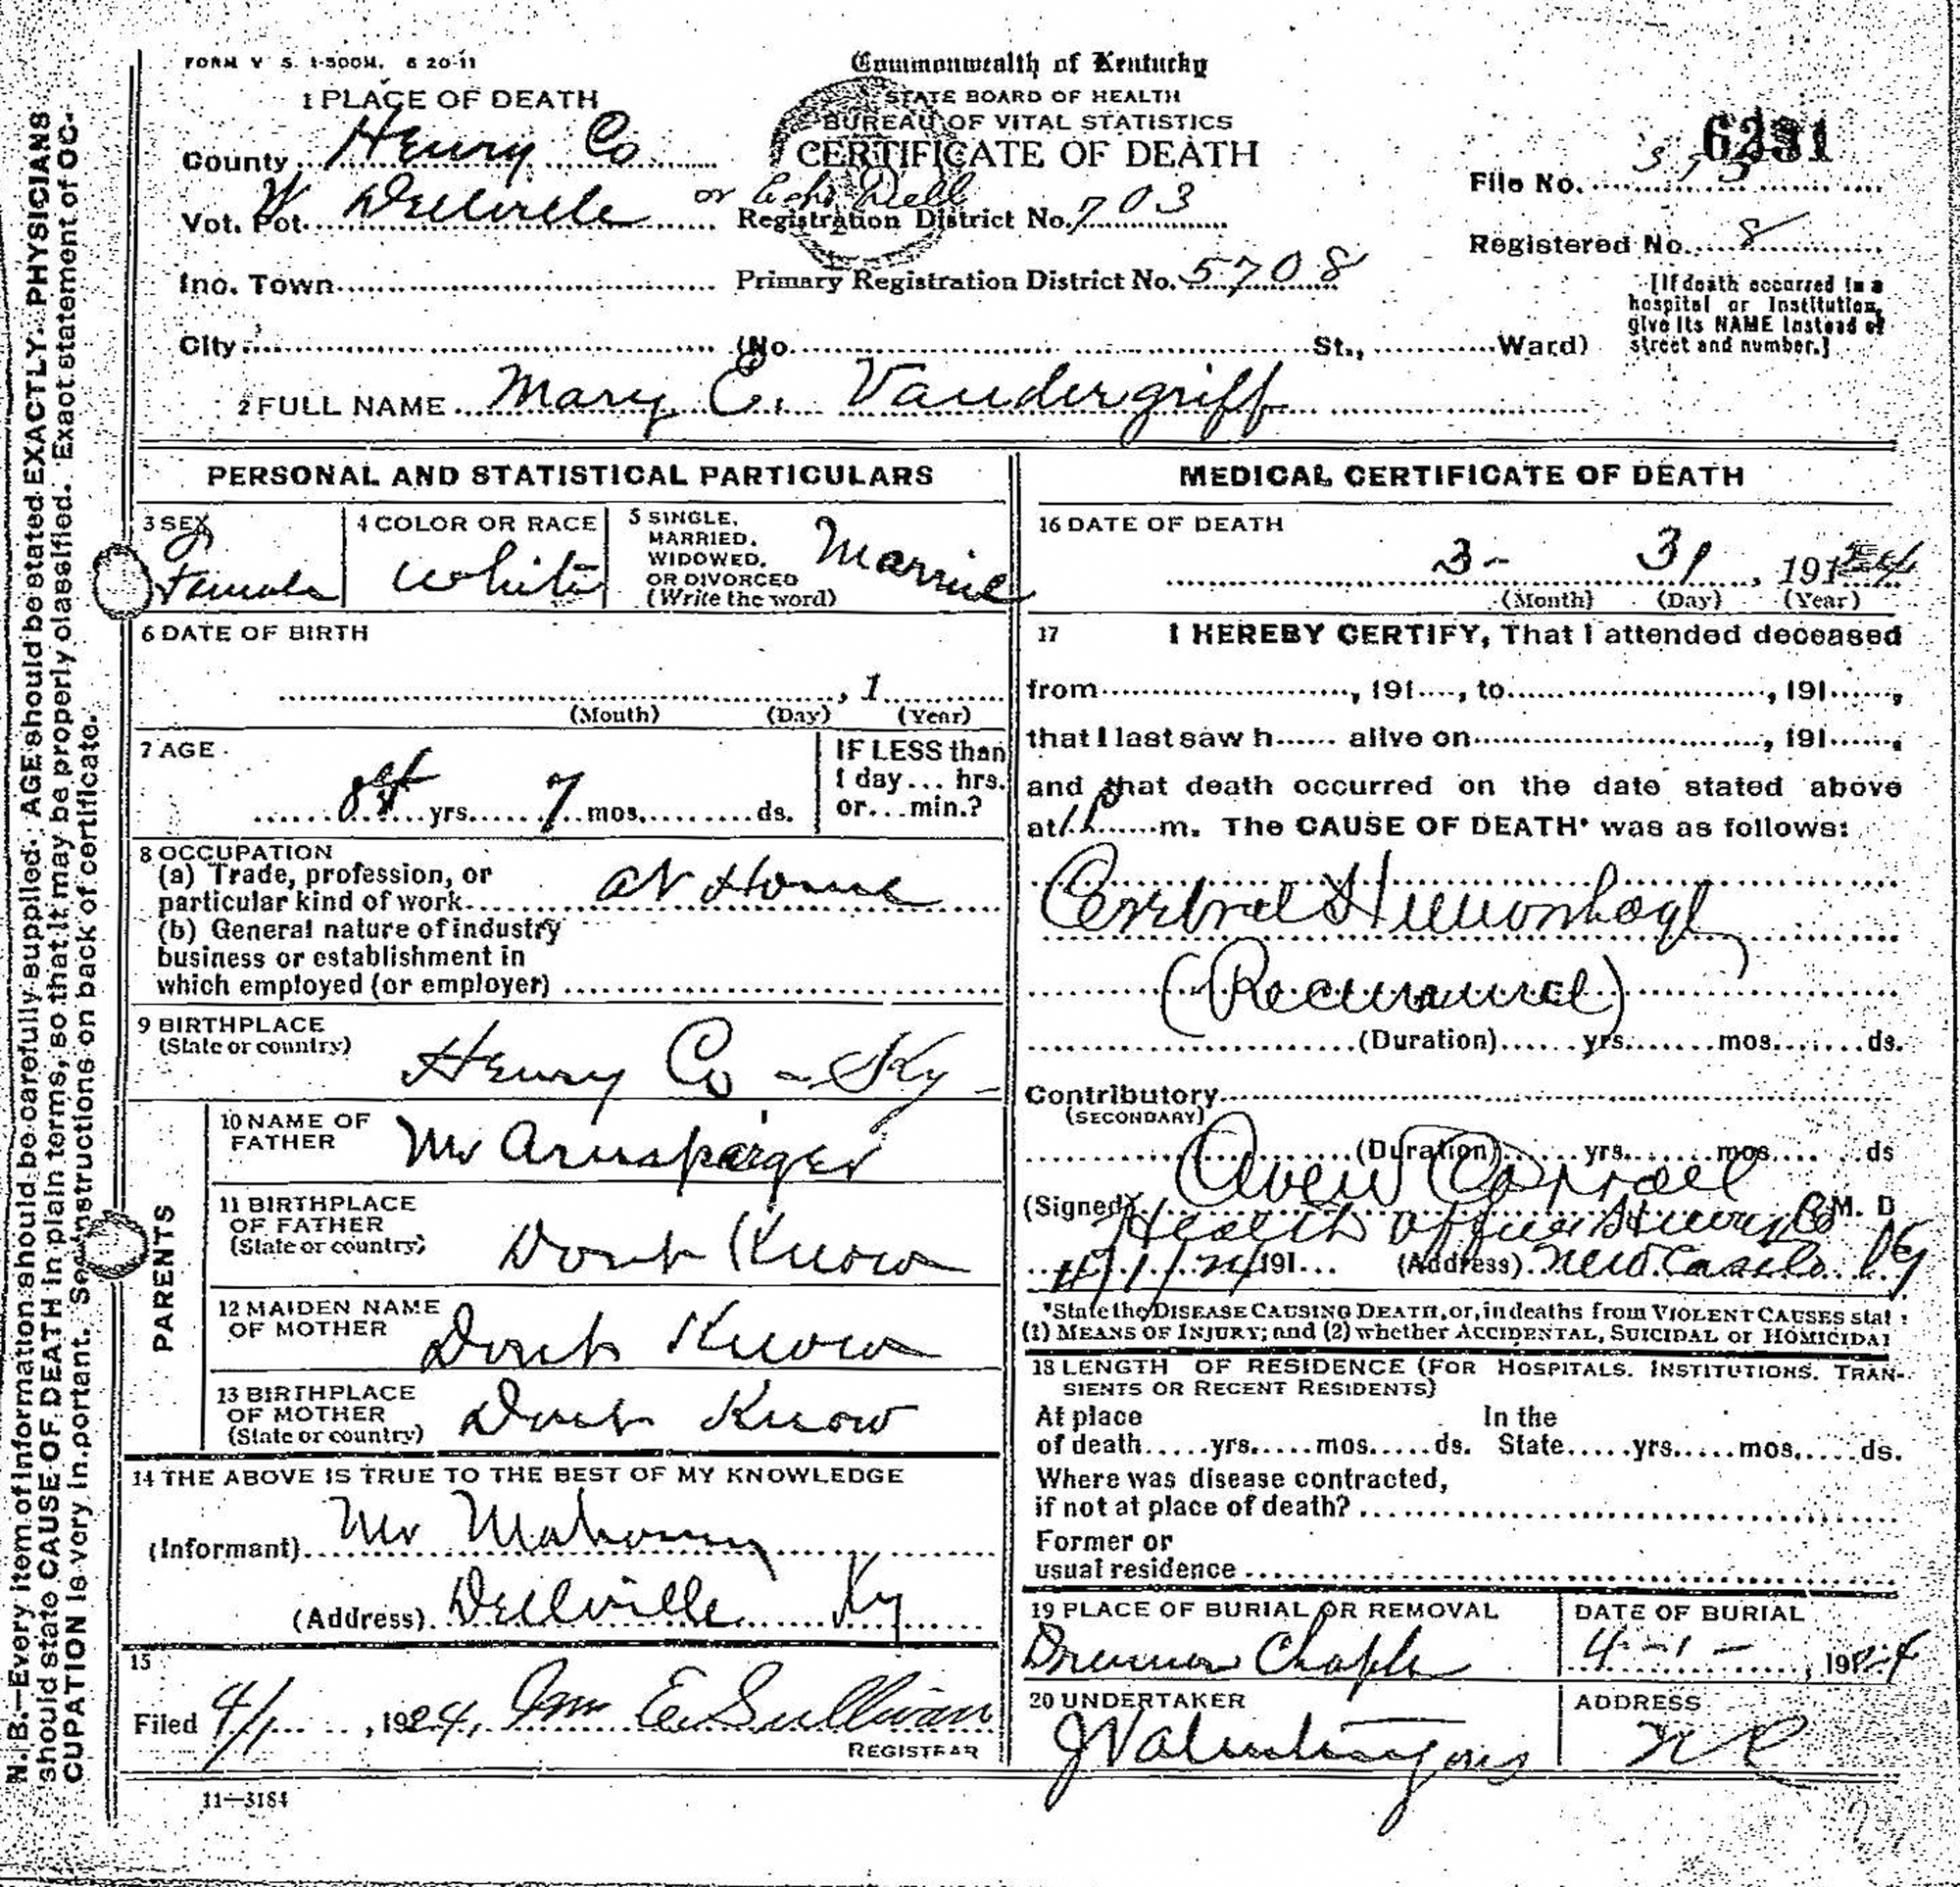 FORM V S. 1-500M. 6 20-11
Commonwealth of Kentucky
STATE BOARD OF HEALTH
BUREAU OF VITAL STATISTICS
CERTIFICATE OF DEATH
1 PLACE OF DEATH
County Henry Co
Vot. Pct. W Dellville or Dell
Registration District No. 703
Inc. Town
Primary Registration District No. 5708
City (No. St., Ward)
File No.
Registered No. 8
[If death occurred in a
hospital or Institution,
give its NAME instead of
street and number.]
2 FULL NAME Mary E. Vandergriff
PERSONAL AND STATISTICAL PARTICULARS
3 SEX
Female
4 COLOR OR RACE
White
5 SINGLE,
MARRIED,
WIDOWED,
OR DIVORCED
(Write the word)
Married
6 DATE OF BIRTH
, 1
(Month) (Day) (Year)
7 AGE
yrs. 7 mos. ds.
IF LESS than
1 day... hrs.
or... min.?
8 OCCUPATION
(a) Trade, profession, or
particular kind of work at Home
(b) General nature of industry
business or establishment in
which employed (or employer)
9 BIRTHPLACE
(State or country)
Henry Co - Ky -
PARENTS
10 NAME OF
FATHER
Mr Arnsparger
11 BIRTHPLACE
OF FATHER
(State or country)
Dont Know
12 MAIDEN NAME
OF MOTHER
Dont Know
13 BIRTHPLACE
OF MOTHER
(State or country)
Dont Know
14 THE ABOVE IS TRUE TO THE BEST OF MY KNOWLEDGE
(Informant) Mr Mahoney
(Address) Dellville Ky
15
Filed 4/1, 1924, Wm E. Sullivan
REGISTRAR
11—3184
MEDICAL CERTIFICATE OF DEATH
16 DATE OF DEATH
3- 31, 191 24
(Month) (Day) (Year)
17 I HEREBY CERTIFY, That I attended deceased
from, 191..., to, 191...,
that I last saw h... alive on, 191...,
and that death occurred on the date stated above
at m. The CAUSE OF DEATH* was as follows:
Cerebral Hemorrhage
(Duration) yrs. mos. ds.
Contributory
(SECONDARY)
(Duration) yrs. mos. ds
(Signed) Owen Carroll M. D
Health Officer Henry Co
4/1/24 191... (Address) New Castle Ky
*State the DISEASE CAUSING DEATH, or, in deaths from VIOLENT CAUSES stat
(1) MEANS OF INJURY; and (2) whether ACCIDENTAL, SUICIDAL or HOMICIDAL
18 LENGTH OF RESIDENCE (FOR HOSPITALS. INSTITUTIONS. TRAN-
SIENTS OR RECENT RESIDENTS)
At place
of death yrs. mos. ds.
In the
State yrs. mos. ds.
Where was disease contracted,
if not at place of death?
Former or
usual residence
19 PLACE OF BURIAL OR REMOVAL
Chaple
DATE OF BURIAL
4-1-, 1924
20 UNDERTAKER
ADDRESS
N C
N. B.—Every item of information should be carefully supplied. AGE should be stated EXACTLY. PHYSICIANS
should state CAUSE OF DEATH in plain terms, so that it may be properly classified. Exact statement of OC-
CUPATION is very important. See instructions on back of certificate.